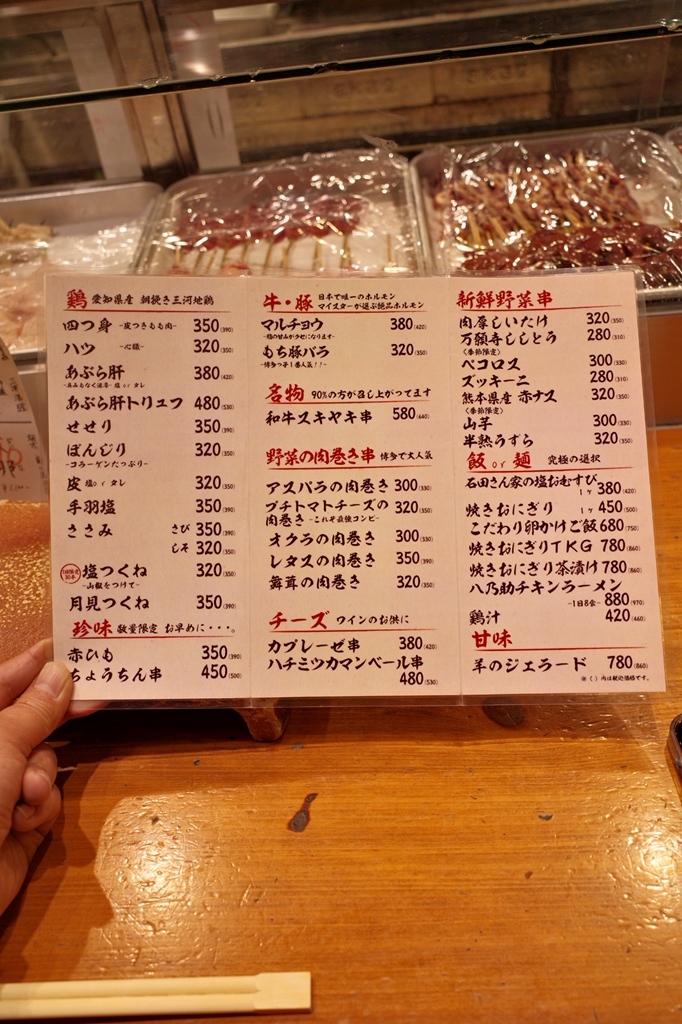 鶏 愛知県産 朝挽き三河地鶏
四つ身 -皮つきもも肉- 350(390)
ハツ -心臓- 320(350)
あぶら肝 380(420)
-臭みもなく濃厚- 塩 or タレ
あぶら肝トリュフ 480(530)
せせり 350(390)
ぼんじり 320(350)
-コラーゲンたっぷり-
皮 塩 or タレ 320(350)
手羽塩 350(390)
ささみ さび 350(390)
しそ 320(350)
塩つくね 320(350)
-山椒をつけて-
月見つくね 350(390)
珍味 数量限定 お早めに・・・。
赤ひも 350(390)
ちょうちん串 450(500)
牛・豚 日本で唯一のホルモン
マイスターが選ぶ絶品ホルモン
マルチョウ 380(420)
-脂の甘みがクセになります-
もち豚バラ 320(350)
-博多っ子1番人気!!-
名物 90%の方が召し上がってます
和牛スキヤキ串 580(640)
野菜の肉巻き串 博多で大人気
アスパラの肉巻き 300(330)
プチトマトチーズの
肉巻き -これぞ最強コンビ- 320(350)
オクラの肉巻き 300(330)
レタスの肉巻き 350(390)
舞茸の肉巻き 320(350)
チーズ ワインのお供に
カプレーゼ串 380(420)
ハチミツカマンベール串
480(530)
新鮮野菜串
肉厚しいたけ 320(350)
万願寺ししとう 280(310)
(季節限定)
ペコロス 300(330)
ズッキーニ 280(310)
熊本県産 赤ナス 320(350)
(季節限定)
山芋 300(330)
半熟うずら 320(350)
飯 or 麺 究極の選択
石田さん家の塩おむすび
1ヶ 380(420)
焼きおにぎり 1ヶ 450(500)
こだわり卵かけご飯 680(750)
焼きおにぎりTKG 780(860)
焼きおにぎり茶漬け 780(860)
八乃助チキンラーメン
-1日8食- 880(970)
鶏汁 420(460)
甘味
羊のジェラード 780(860)
※( )内は税込価格です。